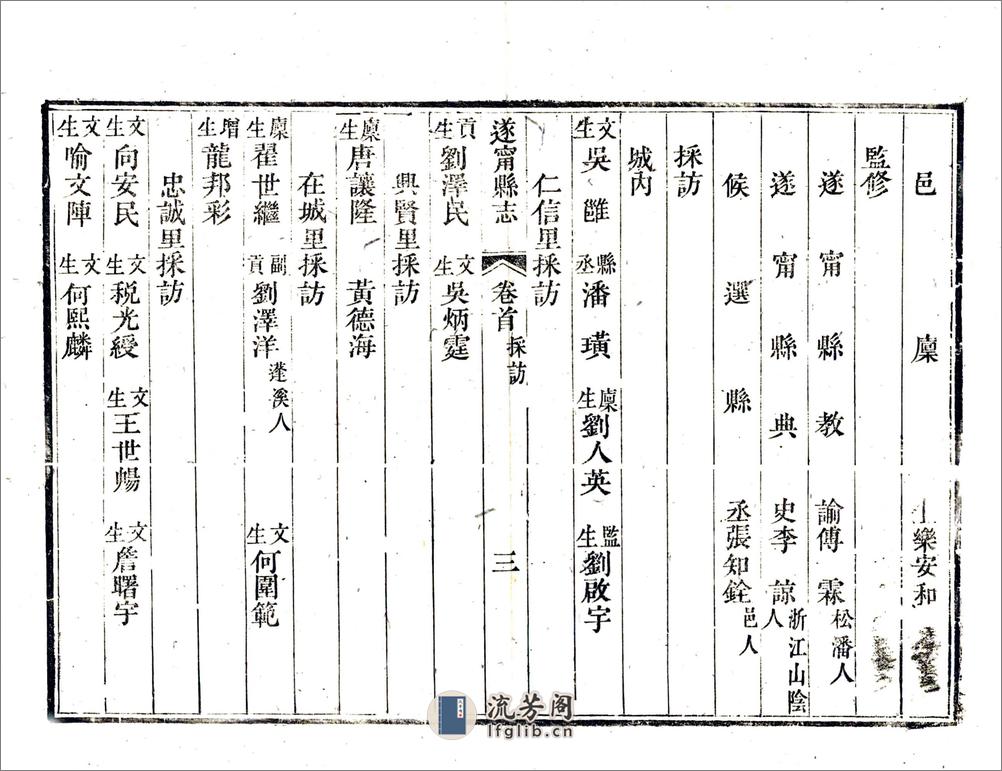 邑廩生樂安和
監修
遂甯縣教諭傅霖松潘人
遂甯縣典史李諒浙江山陰人
候選縣丞張知銓邑人
採訪
城內
文生吳雝 縣丞潘璜 廩生劉人英 監生劉啟宇
仁信里採訪
遂甯縣志 卷首 採訪 三
貢生劉澤民 文生吳炳霆
興賢里採訪
廩生唐讓隆 黃德海
在城里採訪
廩生翟世繼 副貢劉澤洋蓬溪人 文生何圍範
增生龍邦彩
忠誠里採訪
文生向安民 文生稅光綬 文生王世暢 文生詹曙宇
文生喻文陣 文生何熙麟
流芳阁
lfglib.cn